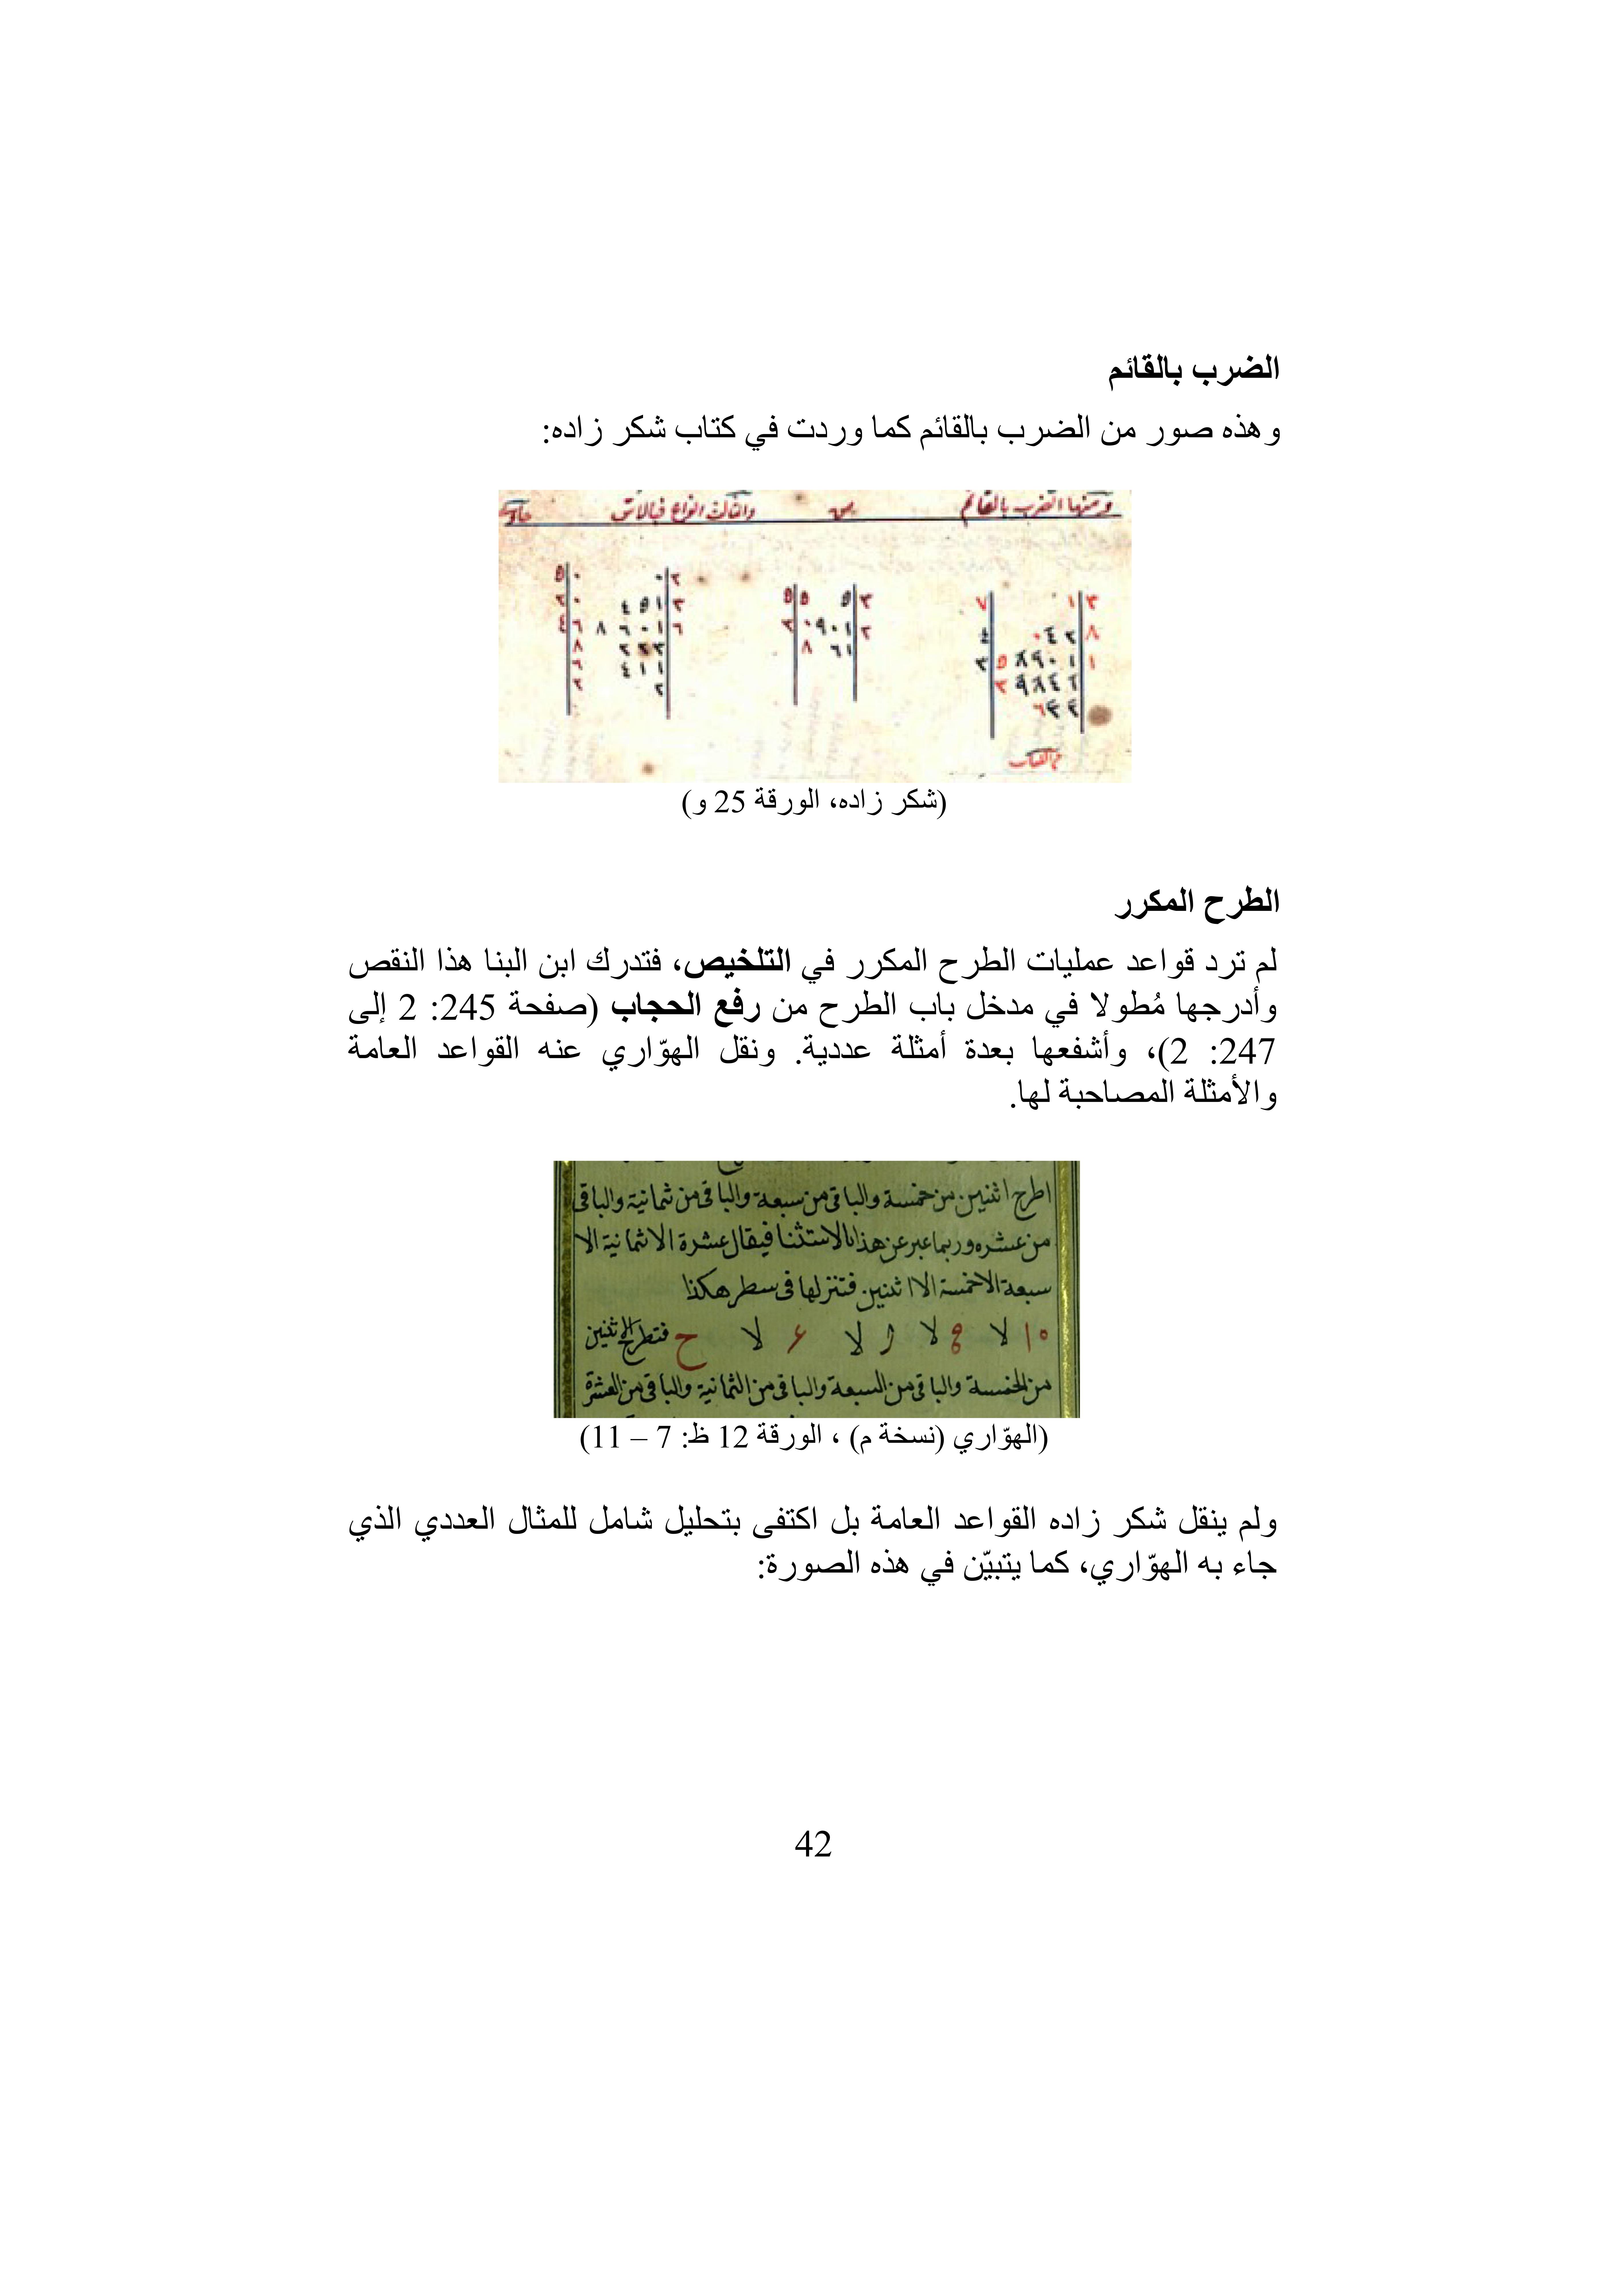 الضرب بالقائم
وهذه صور من الضرب بالقائم كما وردت في كتاب شكر زاده:
ومنها الضرب بالقائم
(شكر زاده، الورقة 25 و)
الطرح المكرر
لم ترد قواعد عمليات الطرح المكرر في التلخيص، فتدرك ابن البنا هذا النقص
وأدرجها مُطولا في مدخل باب الطرح من رفع الحجاب (صفحة 245: 2 إلى
247: 2)، وأشفعها بعدة أمثلة عددية. ونقل الهوّاري عنه القواعد العامة
والأمثلة المصاحبة لها.
اطرح اثنين من خمسة والباقي من سبعة والباقي من ثمانية والباقي
من عشره وربما عبر عن هذا بالاستثنا فيقال عشرة الا ثمانية الا
سبعة الا خمسة الا اثنين فتنزلها في سطر هكذا
فتطرح الاثنين
من الخمسة والباقي من السبعة والباقي من الثمانية والباقي من العشرة
(الهوّاري (نسخة م) ، الورقة 12 ظ: 7 – 11)
ولم ينقل شكر زاده القواعد العامة بل اكتفى بتحليل شامل للمثال العددي الذي
جاء به الهوّاري، كما يتبيّن في هذه الصورة:
42